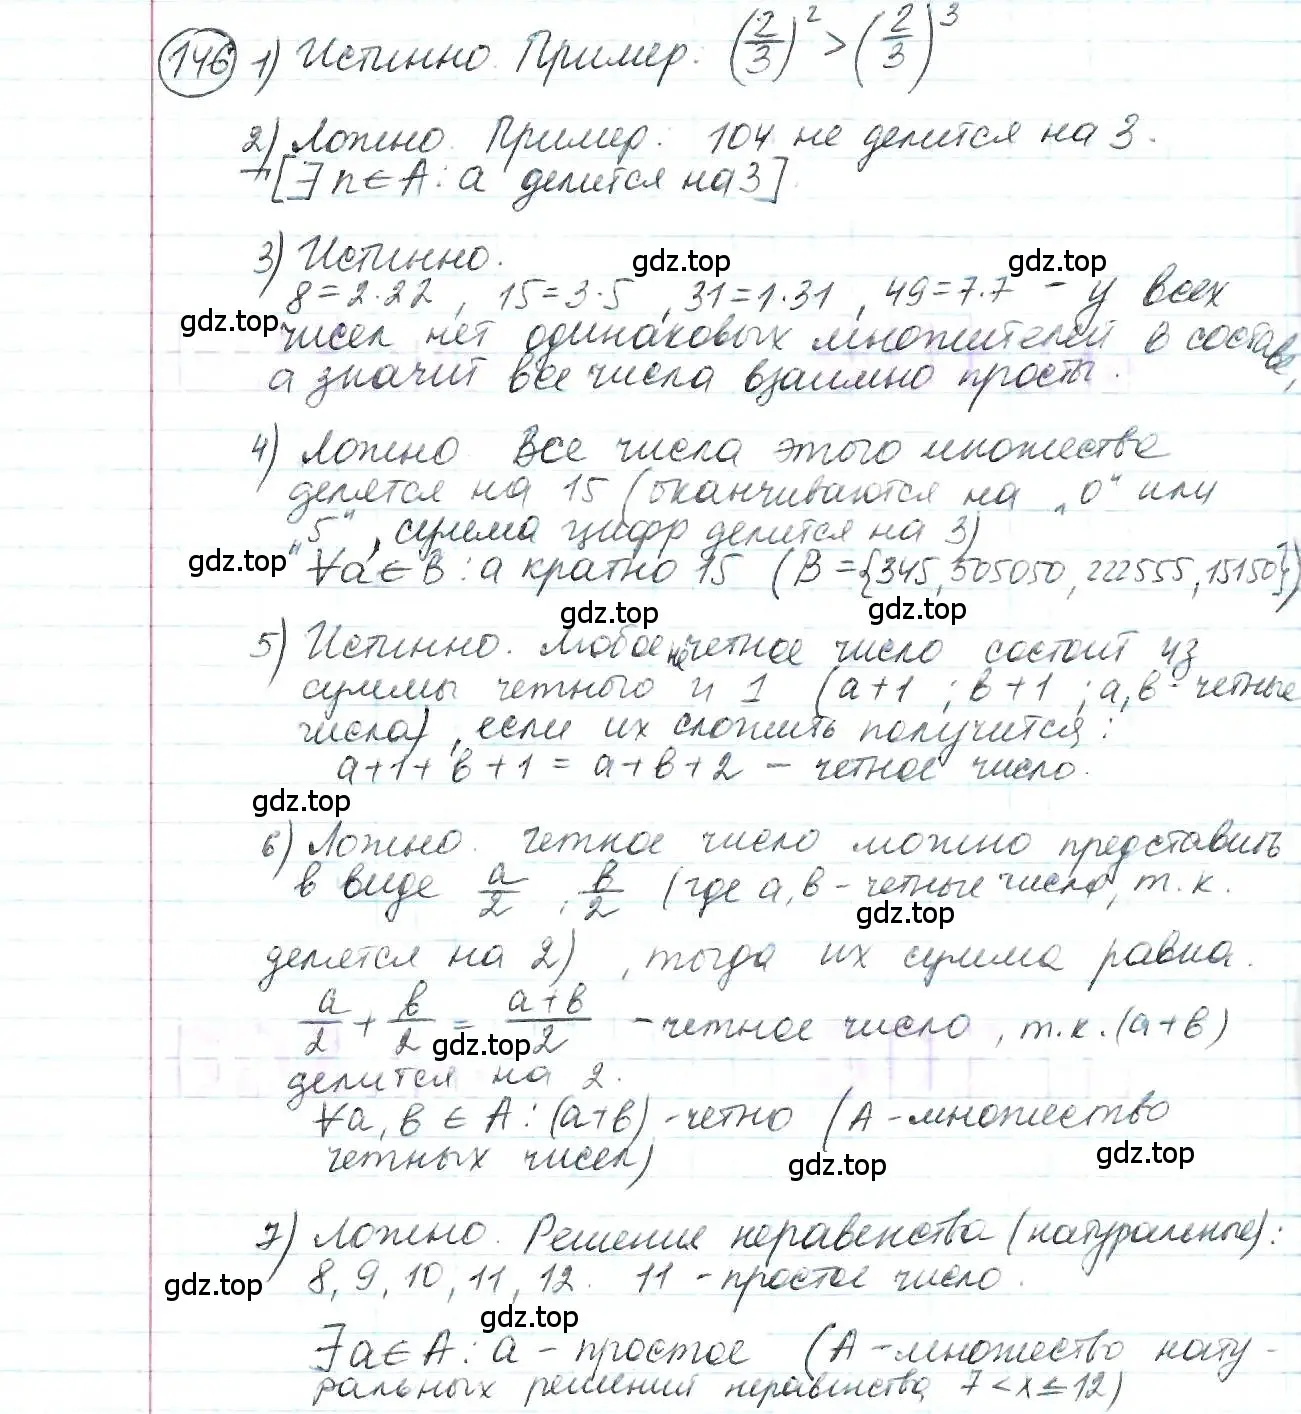 146 1) Истинно. Пример: (2/3)² > (2/3)³
2) Ложно. Пример: 104 не делится на 3.
[∃ n ∈ A : a делится на 3].
3) Истинно.
gdz.top gdz.top
8=2·22, 15=3·5, 31=1·31, 49=7·7 – у всех
gdz.top чисел нет одинаковых множителей в составе,
а значит все числа взаимно просты.
4) Ложно. Все числа этого множества
делятся на 15 (оканчиваются на „0“ или
„5“, сумма цифр делится на 3)
gdz.top ∀a ∈ B : a кратно 15 (B = {345, 505050, 222555, 15150})
gdz.top gdz.top
5) Истинно. Любое нечетное число состоит из
суммы четного и 1 (a+1 ; в+1 ; a, в – четные
числа), если их сложить получится:
a+1+в+1 = a+в+2 – четное число.
gdz.top
6) Ложно. Четное число можно представить
в виде a/2 ; в/2 (где a, в – четные числа, т.к.
gdz.top
делятся на 2), тогда их сумма равна.
a/2 + в/2 = (a+в)/2 – четное число, т.к. (a+в)
gdz.top
делится на 2.
∀a, в ∈ A : (a+в) – четно (A – множество
четных чисел)
gdz.top gdz.top
7) Ложно. Решения неравенства (натуральные):
gdz.top 8, 9, 10, 11, 12. 11 – простое число.
gdz.top
∃a ∈ A : a – простое (A – множество нату-
ральных решений неравинства 7 < x ≤ 12)